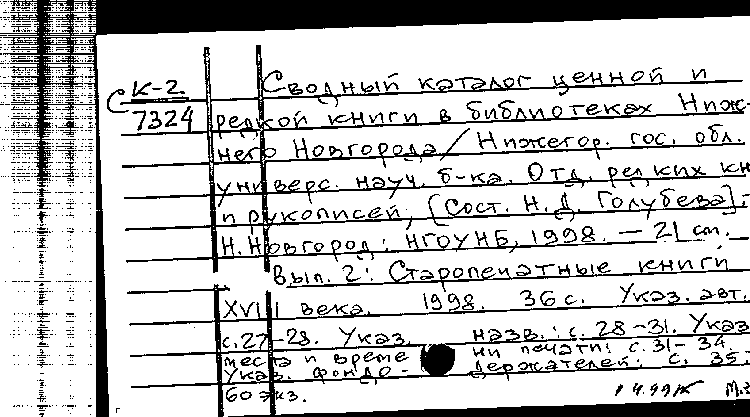 С К-2
7324
Сводный каталог ценной и
редкой книги в библиотеках Ниж-
него Новгорода / Нижегор. гос. обл.
универс. науч. б-ка. Отд. редких кн
и рукописей; [Сост. Н. Д. Голубева].-
Н. Новгород: НГОУНБ, 1998. — 21 см.
Вып. 2: Старопечатные книги
XVIII века. 1998. 36 с. Указ. авт.
с. 27-28. Указ. назв.: с. 28-31. Указ
места и време ни печати: с. 31-34.
Указ. фондо- держателей: с. 35.
60 экз.